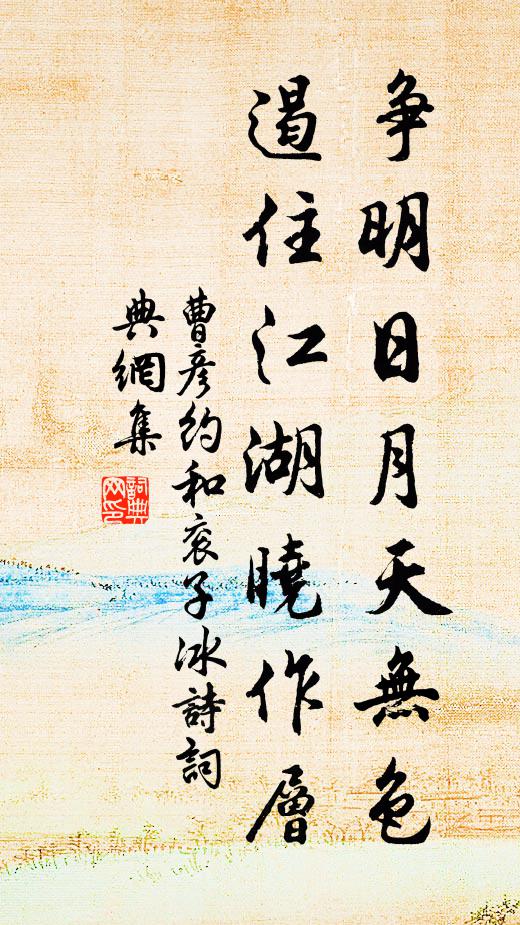 争明日月天無色
遏住江湖曉作層
曹彥約和衮子冰詩詞
典網集
詞典網印